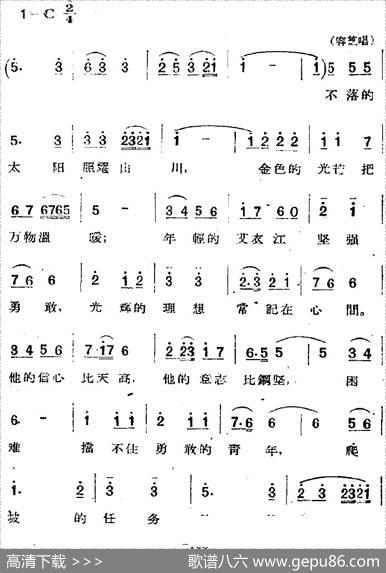 1=C 2/4
(容芝唱)
(5· 3 | 6 3 3 | 2 5 3 21 | 1 - | 1) 5 5 5
不落的
5· 3 | 3 2321 | 1 - | 1 2 2 2 | 1 7 6 7
太阳照耀山川，金色的光芒把
6 7 6765 | 5 - | 3 4 5 6 | 1 7 6 0 | 2 1
万物温暖；年轻的艾衣江坚强
7 6 6 | 2 1 2 | 3 3 | 2·3 2 1 | 7 6 6
勇敢，光辉的理想常记在心间。
3 4 5 6 | 7 17 6 | 2 23 1 7 | 6·5 5 | 5 3 4
他的信心比天高，他的意志比钢坚，困
6· - | 1 1 1 | 2 1 1 | 7·6 6 | 6 6 7
难挡不住勇敢的青年，爬
1· 2 | 3 3
坡的任务
高清下载 >>> 歌谱八六 www.gepu86.com